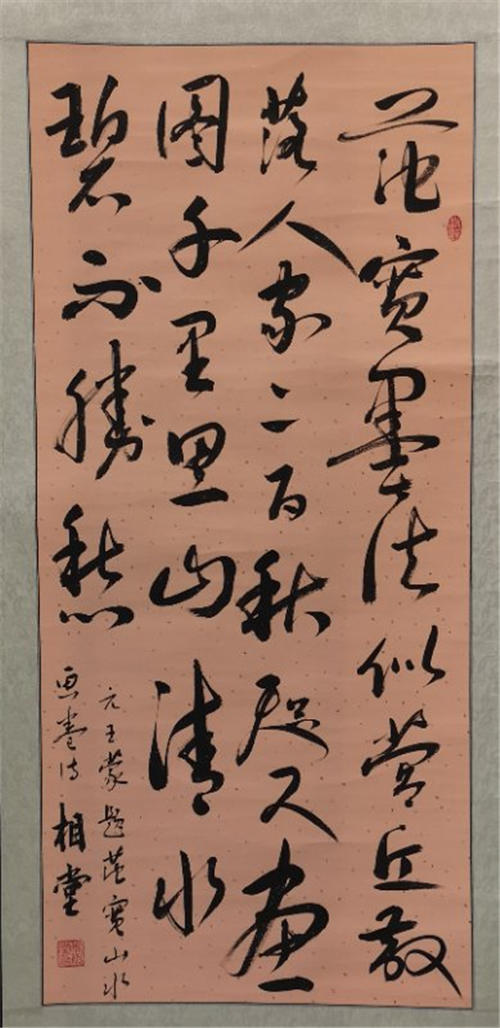 范寬墨法似营丘散
落人家二百秋咫尺画
图千里思山清水
碧不勝愁
元王蒙题范寬山水
画卷诗 相堂